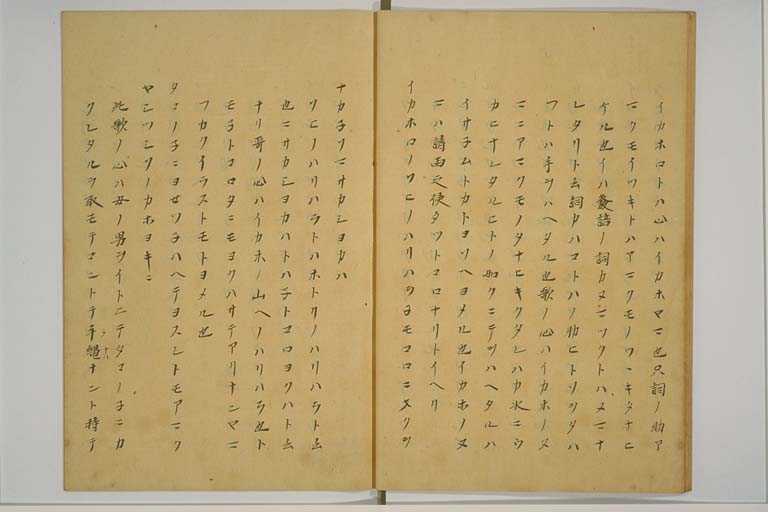 イカホロトハ心ハイカホマニ也只詞ノ助ア
ニクモイツキトハアニクモノワーキタナヒ
ケル也イハ發語ノ詞カヌニツクトハメニナ
レタリト云詞カハコトハノ助ヒトソツタハ
フトハ手ツハヘタル也歌ノ心ハイカホノヌ
マニアニクモノタナヒキクタレハカ水ニウ
カヒナレタルヒトノ如クニテツハヘタルハ
イサチムトカトヨソヘヨメル也イカホノヌ
ニハ請雨之使タツトコロナリトイヘリ
イカホロノソヒノハリハラチモコロニヌクツ
ナカチクニサカシヨカハ
ソヒノハリハラトハホトリノハリハラト云
也ニサカシヨカハトハチトコロヨクハト云
ナリ哥ノ心ハイカホノ山ヘノハリハラ也ト
モチトコロタニモヨクハサテアリナンマニ
フカクイラストモトヨメル也
タコノチニヨセツチハヘテヨスレトモアニク
ヤシツシソノカホヨキニ
此歌ノ心ハ女ノ男ヲイトニテタコノチニカ
クレタルヲ取モテコントテ手繩ナント持テ